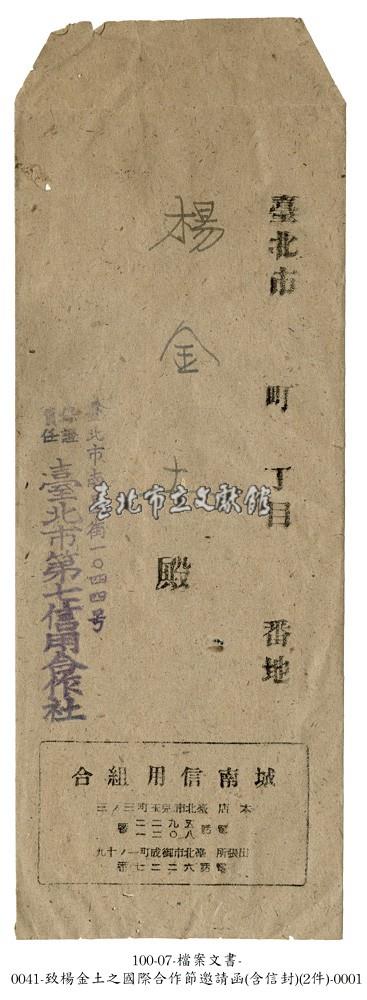 臺北市 町 丁目 番地
楊金土 殿
臺北市立文獻館
臺北市南昌街一〇四四号
保證責任
臺北市第七信用合作社
城南信用組合
本店 臺北市兒玉町三ノ三
電話 五九二二
八〇二一番
出張所 臺北市御成町一ノ十九
電話六二二七番
100-07-檔案文書-
0041-致楊金土之國際合作節邀請函(含信封)(2件)-0001